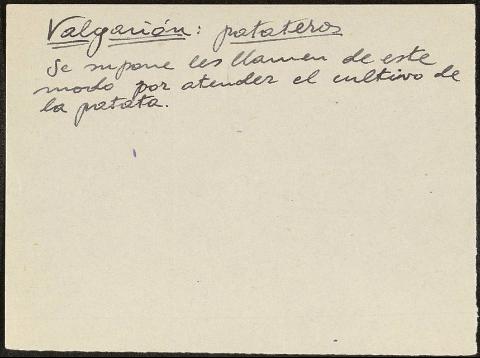 Valgañón: patateros
Se supone les llamen de este
modo por atender el cultivo de
la patata.